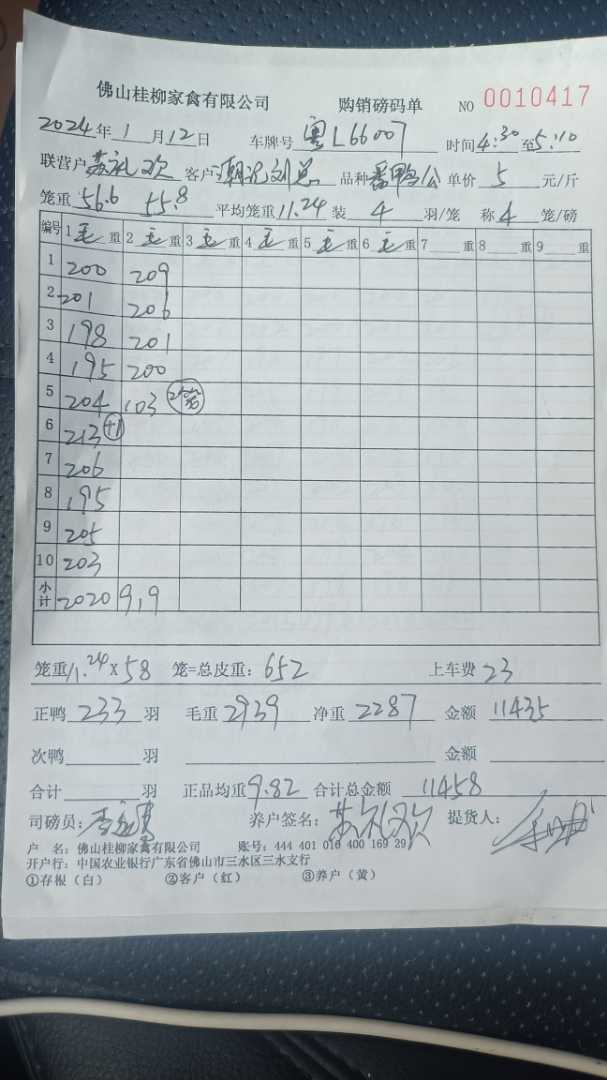 佛山桂柳家禽有限公司 购销磅码单 NO 0010417
2024年1月12日 车牌号 粤L66007 时间4:30至5:10
联营户 客户 潮记刘总 品种 番鸭公 单价 5 元/斤
笼重 56.6 55.8 平均笼重 11.24 装 4 羽/笼 称 4 笼/磅
编号 1毛重 2毛重 3毛重 4毛重 5毛重 6毛重 7重 8重 9重
1 200 209
2 201 206
3 198 201
4 195 200
5 204 103 2笼
6 213 +1
7 206
8 195
9 205
10 203
小计 2020 919
笼重11.24×58 笼=总皮重:652 上车费 23
正鸭 233 羽 毛重 2939 净重 2287 金额 11435
次鸭 羽 金额
合计 羽 正品均重 9.82 合计总金额 11458
司磅员: 养户签名: 提货人:
户 名:佛山桂柳家禽有限公司 账号:444 401 010 400 169 29
开户行:中国农业银行广东省佛山市三水区三水支行
①存根(白) ②客户(红) ③养户(黄)